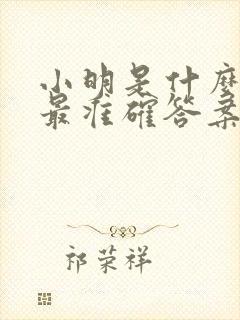 小明是什麽
最准確答案
祁荣祥